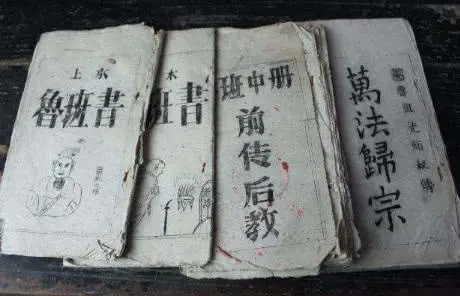 上水
魯班書
木
班書
班中册
前传后教
魯班先师秘傳
萬法歸宗